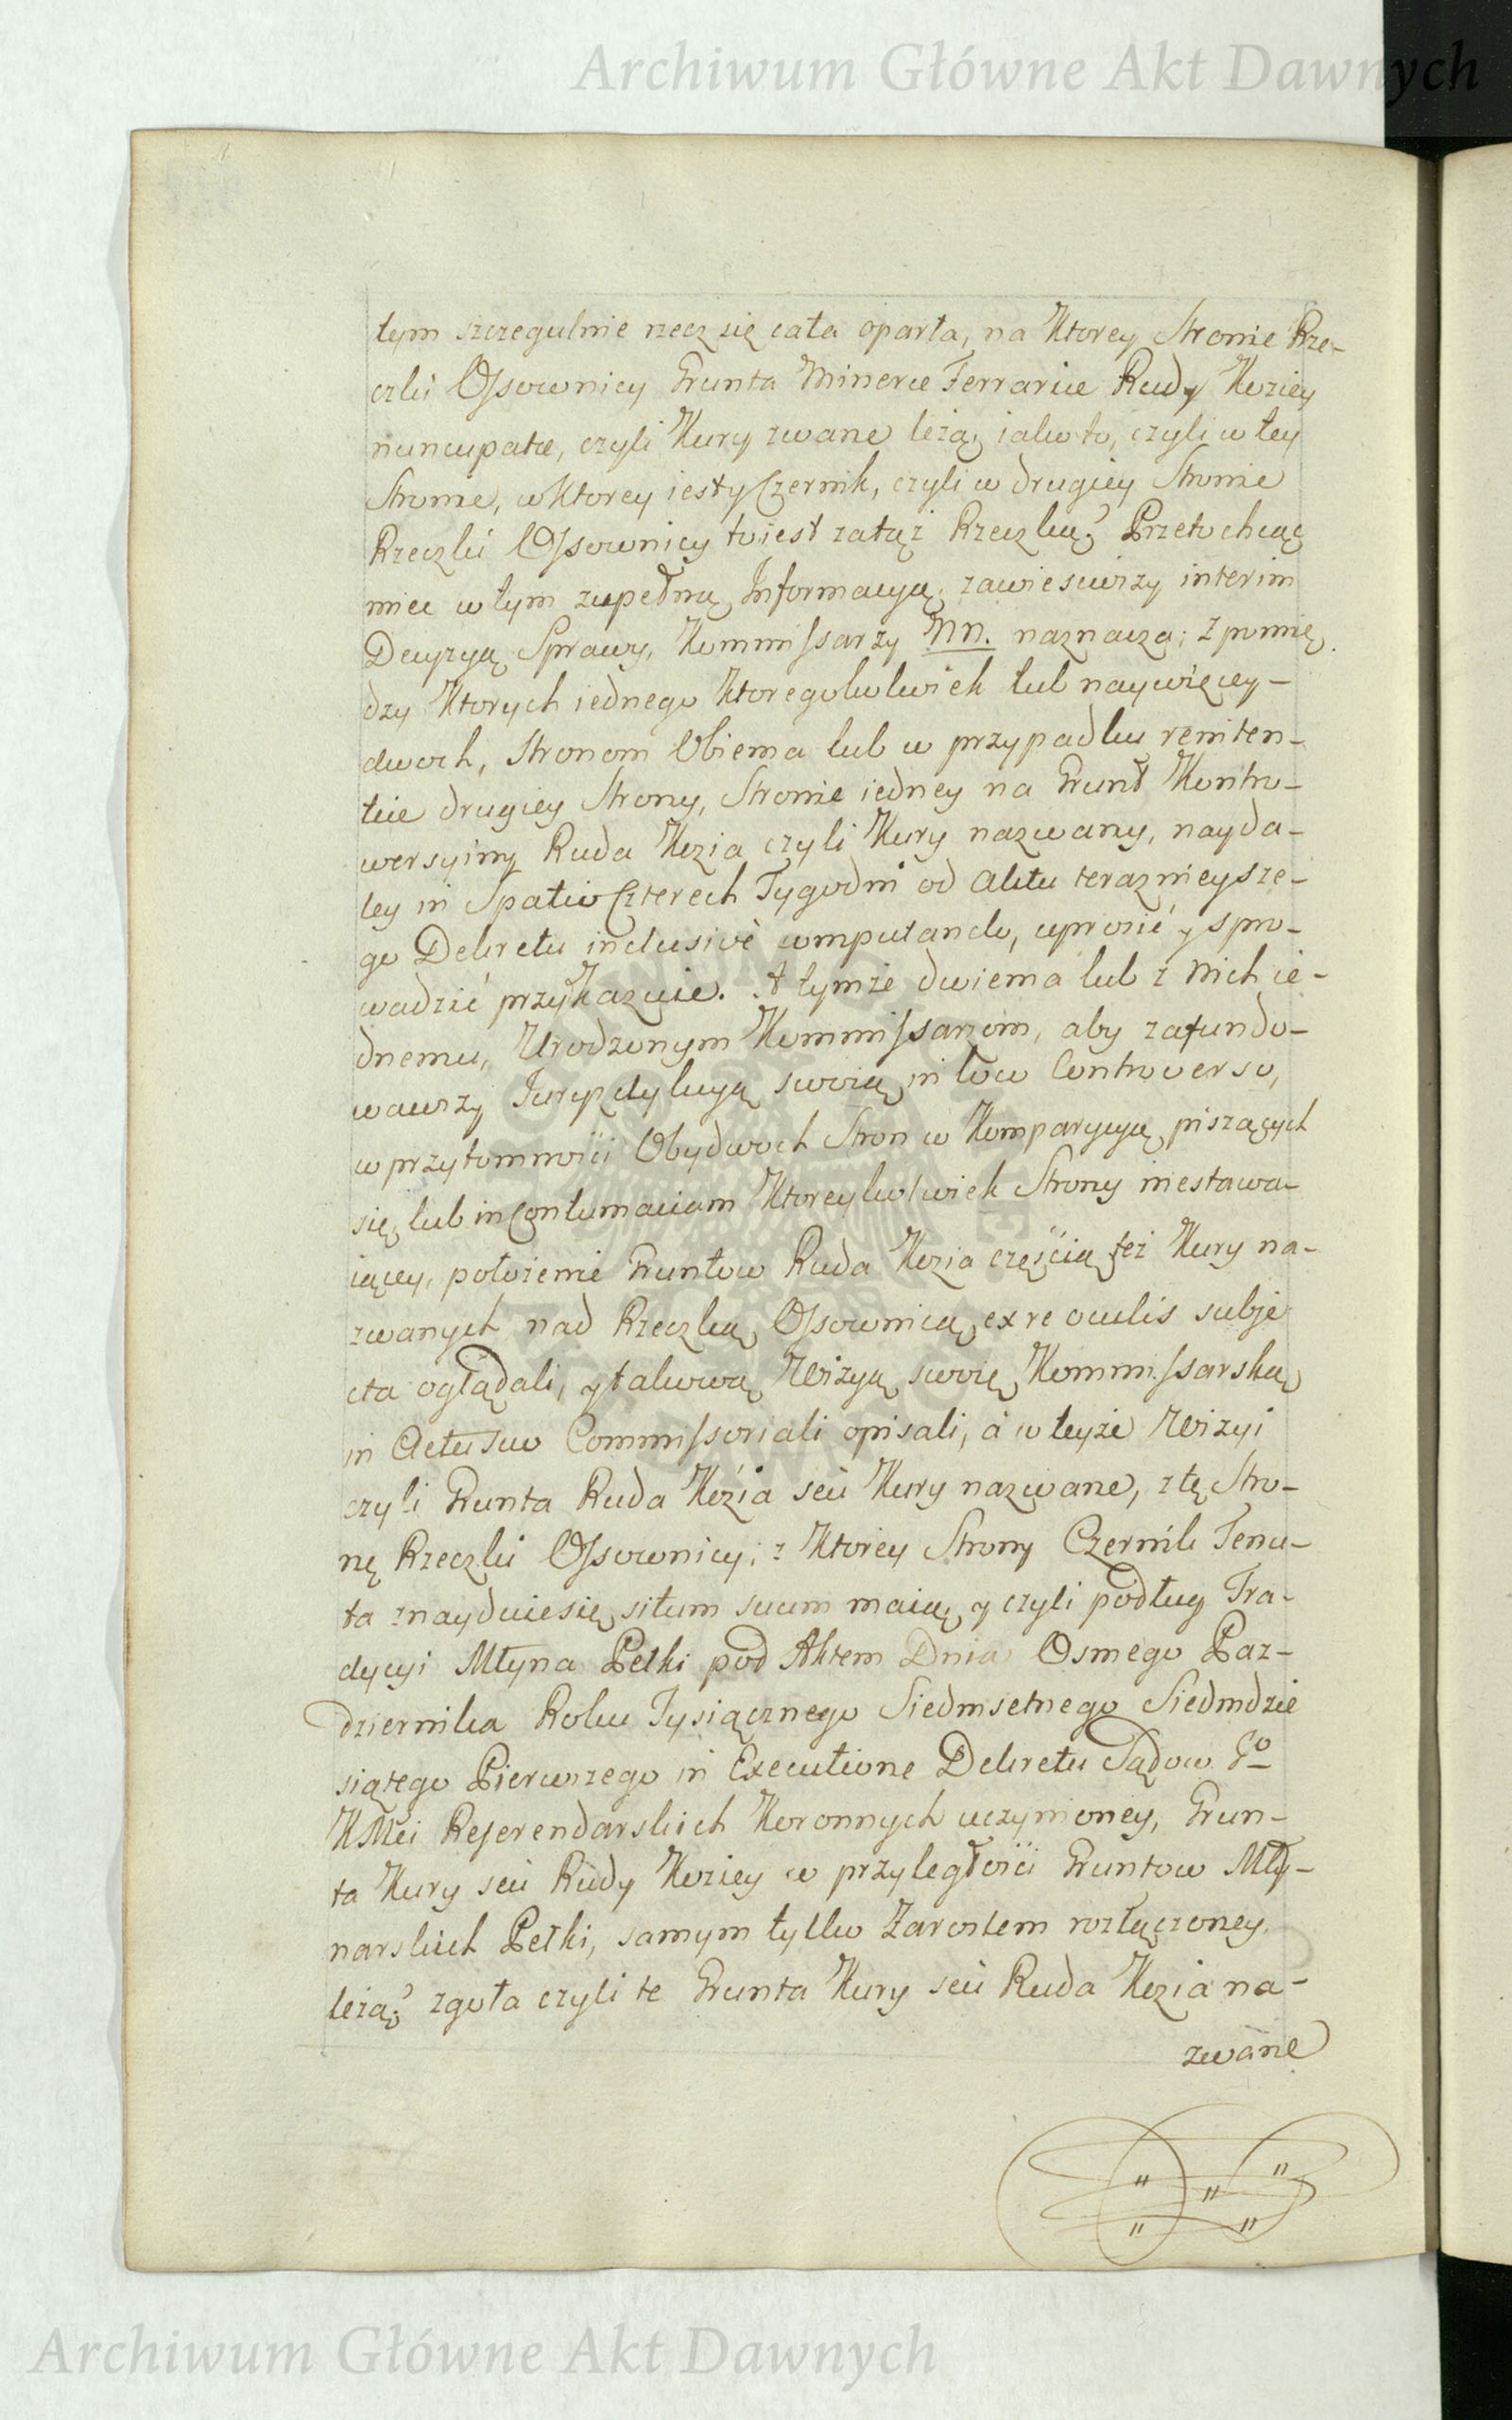 Archiwum Główne Akt Dawnych
tym szczegulnie rzecz się cała oparła, na Ktorey Stronie Rze-
czki Ossownicy Grunta Mineræ Ferrariæ Rudy Koziey
nuncupatæ, czyli Kury zwane leżą, iako to, czyli w tey
Stronie, w Ktorey iest y Czernik, czyli w drugiey Stronie
Rzeczki Ossownicy to iest za tąż Rzeczką? Przeto chcąc
miec w tym zupełną Informacyą, zawiesiwszy interim
Decyzyą Sprawy, Kommissarzy NN. naznacza; z pomię-
dzy Ktorych iednego Ktoregokolwiek lub naywięcey-
dwoch, Stronom Obiema lub w przypadku reniten-
tcie drugiey Strony, Stronie iedney na Grunt Kontro-
wersyiny Ruda Kozia czyli Kury nazwany, nayda-
ley in Spatio Czterech Tygodni od aktu teraznieysze-
go Dekretu inclusivè computando, uprosić y spro-
wadzić przykazuie. A tymże dwiema lub z Nich ie-
dnemu, Urodzonym Kommissarzom, aby zafundo-
wawszy Juryzdykcyą swoią in loco Controverso,
w przytomności Obydwoch Stron w Komparycyą piszących
się, lub in Contumaciam Ktoreykolwiek Strony niestawa-
iącey, położenie Gruntow Ruda Kozia częścią też Kury na-
zwanych nad Rzeczką Ossownicą, ex re oculis subje
cta oglądali, y takową Wizyą swoię Kommissarską
in Actu suo Commissoriali opisali, à w teyże Wizyi
czyli Grunta Ruda Kozia seu Kury nazwane, z tę Stro-
nę Rzeczki Ossownicy, z Ktorey Strony Czernik Tenu-
ta znayduie się, situm suum maią, y czyli podług Tra-
dycyi Młyna Pełki pod Aktem Dnia Osmego Paz-
dziernika Roku Tysiącznego Siedmsetnego Siedmdzie
siątego Pierwszego in Executione Dekretu Sądow Jº
KMci Referendarskich Koronnych uczynioney, Grun-
ta Kury seu Rudy Koziey w przyległości Gruntow Mły-
narskich Pełki, samym tylko Zarostem rozłączoney,
leżą? zgoła czyli te Grunta Kury seu Ruda Kozia na-
zwane
Archiwum Główne Akt Dawnych